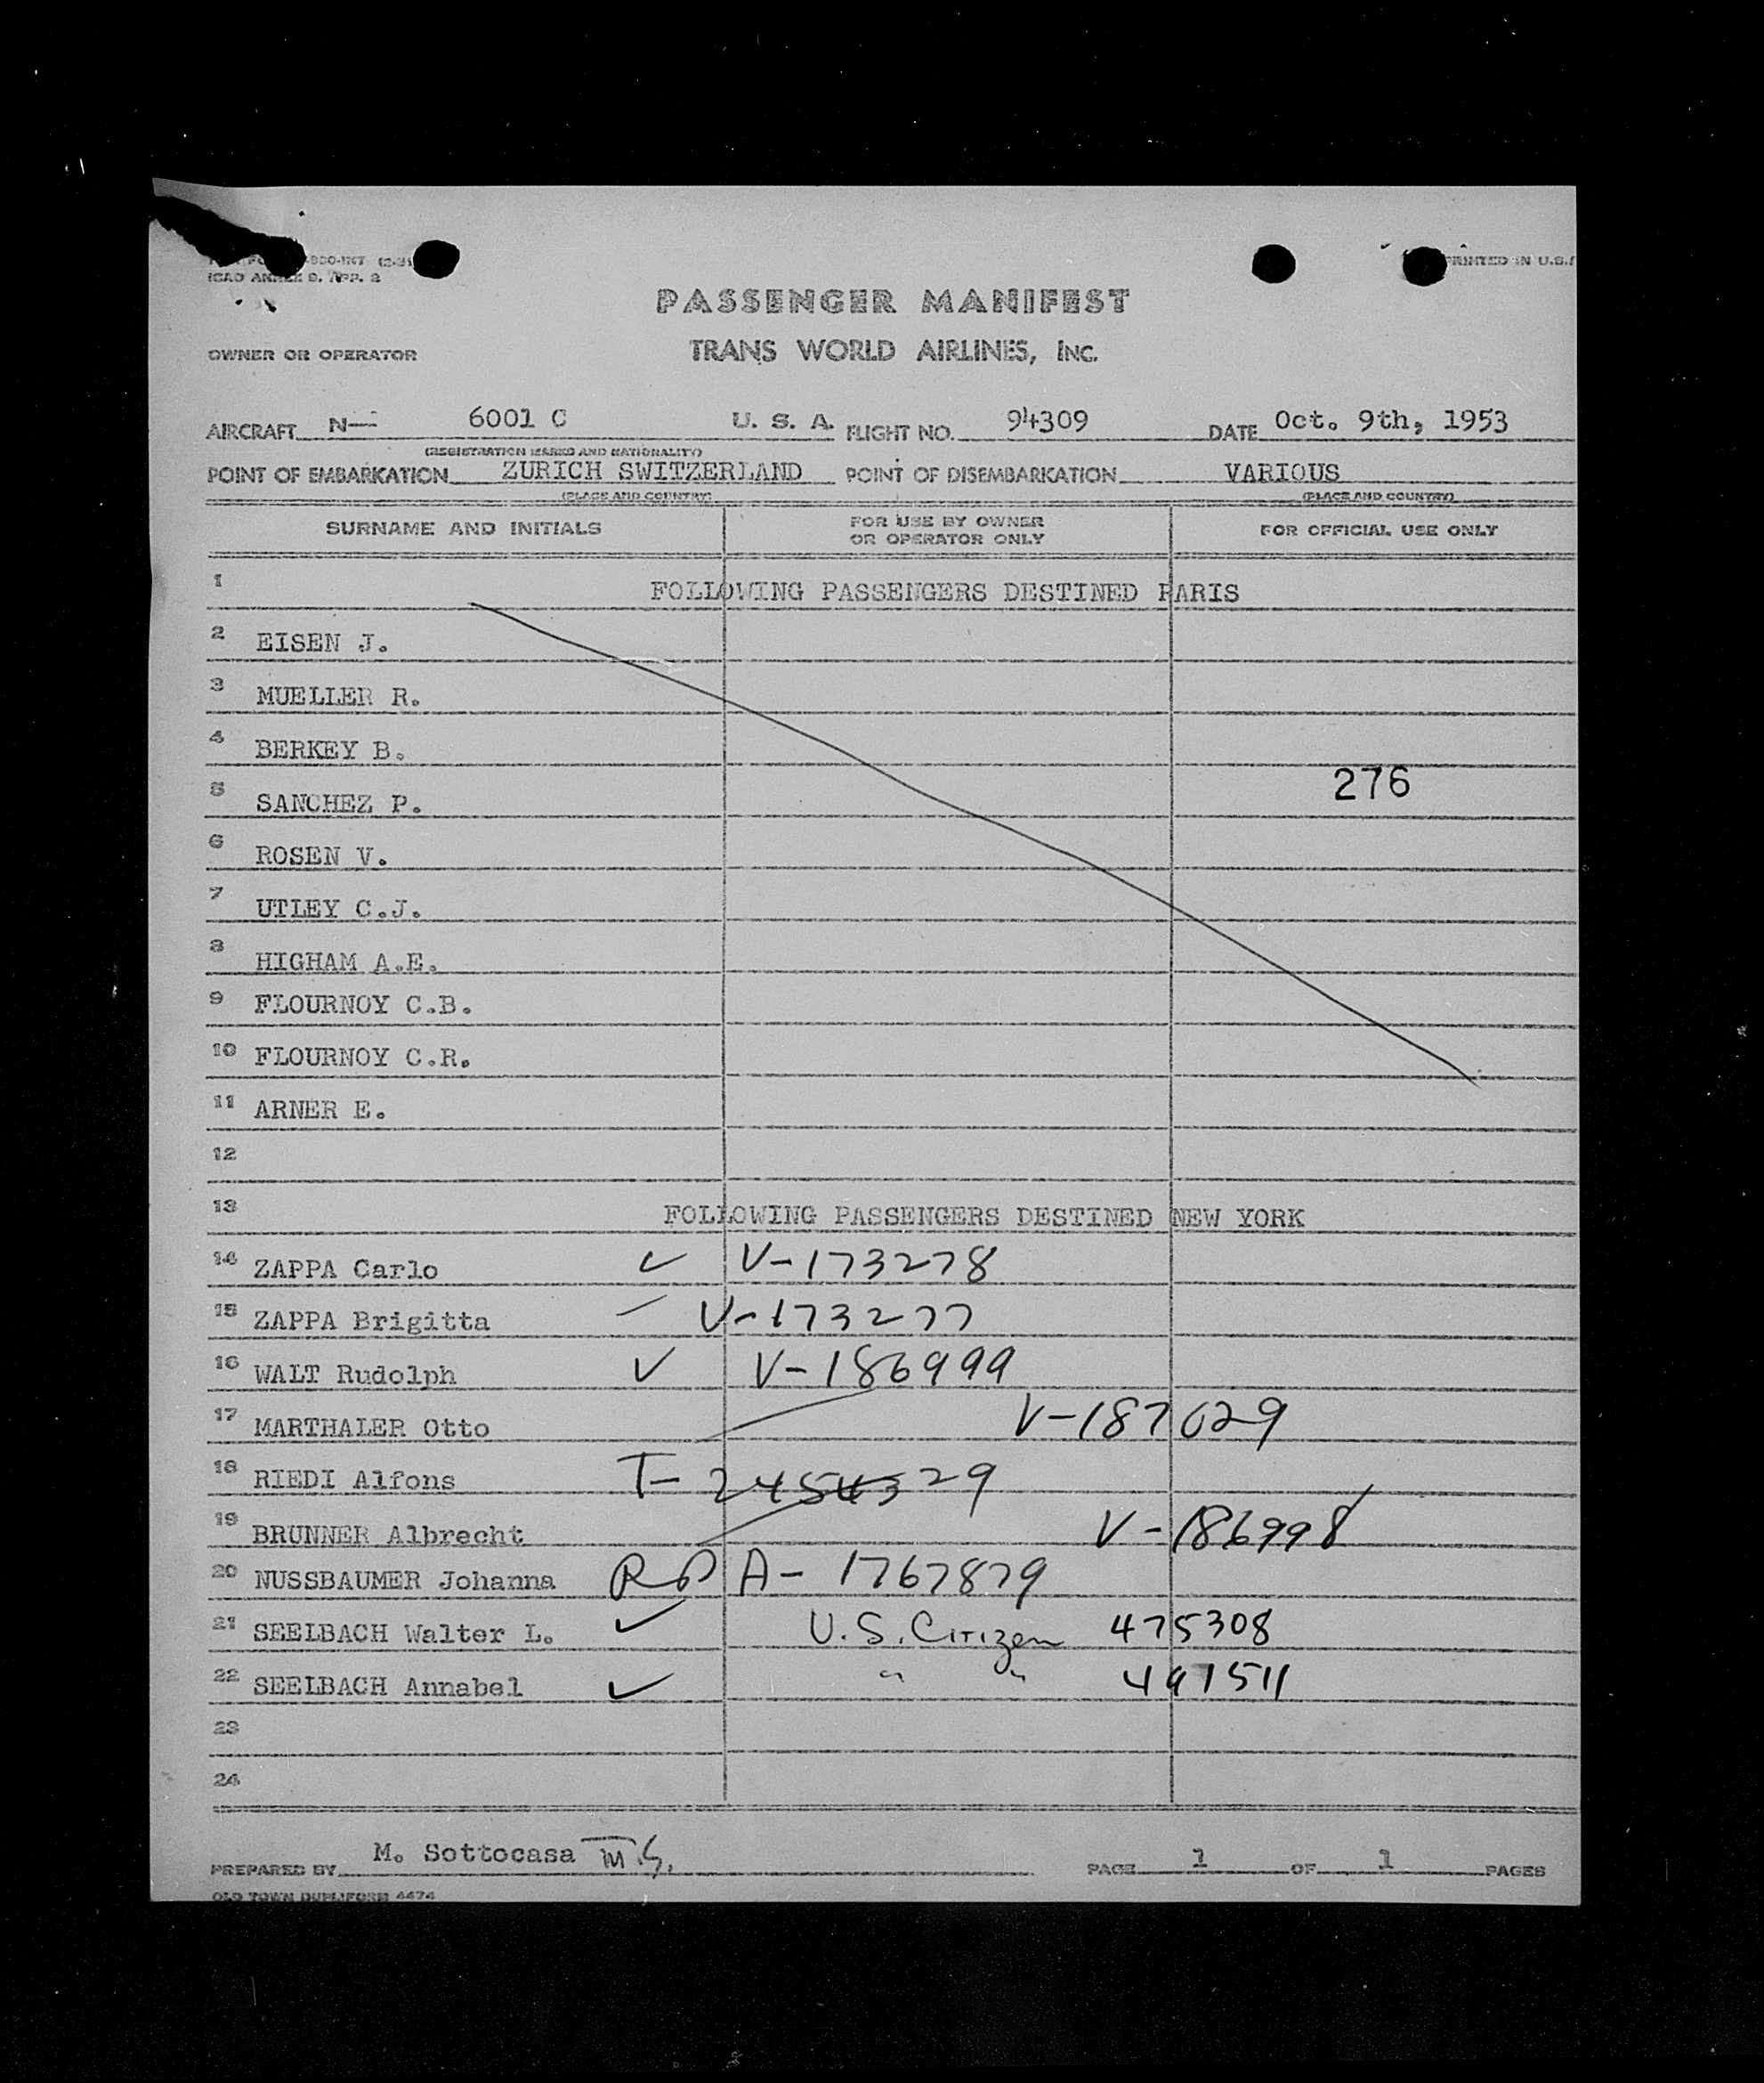 ICAO ANNEX 9, APP. 2
PRINTED IN U.S.A
PASSENGER MANIFEST
OWNER OR OPERATOR TRANS WORLD AIRLINES, INC.
AIRCRAFT N— 6001 C U. S. A. FLIGHT NO. 94309 DATE Oct. 9th, 1953
(REGISTRATION MARKS AND NATIONALITY)
POINT OF EMBARKATION ZURICH SWITZERLAND POINT OF DISEMBARKATION VARIOUS
(PLACE AND COUNTRY) (PLACE AND COUNTRY)
SURNAME AND INITIALS FOR USE BY OWNER OR OPERATOR ONLY FOR OFFICIAL USE ONLY
1 FOLLOWING PASSENGERS DESTINED PARIS
2 EISEN J.
3 MUELLER R.
4 BERKEY B.
276
5 SANCHEZ P.
6 ROSEN V.
7 UTLEY C.J.
8 HIGHAM A.E.
9 FLOURNOY C.B.
10 FLOURNOY C.R.
11 ARNER E.
12
13 FOLLOWING PASSENGERS DESTINED NEW YORK
14 ZAPPA Carlo ✓ V-173278
15 ZAPPA Brigitta V-173277
16 WALT Rudolph ✓ V-186999
17 MARTHALER Otto V-187029
18 RIEDI Alfons T-2454329
19 BRUNNER Albrecht V-186998
20 NUSSBAUMER Johanna A-1767879
21 SEELBACH Walter L. ✓ U.S. Citizen 475308
22 SEELBACH Annabel ✓ " " 497511
23
24
PREPARED BY M. Sottocasa M.S. PAGE 1 OF 1 PAGES
OLD TOWN DUPLIFORM 4474